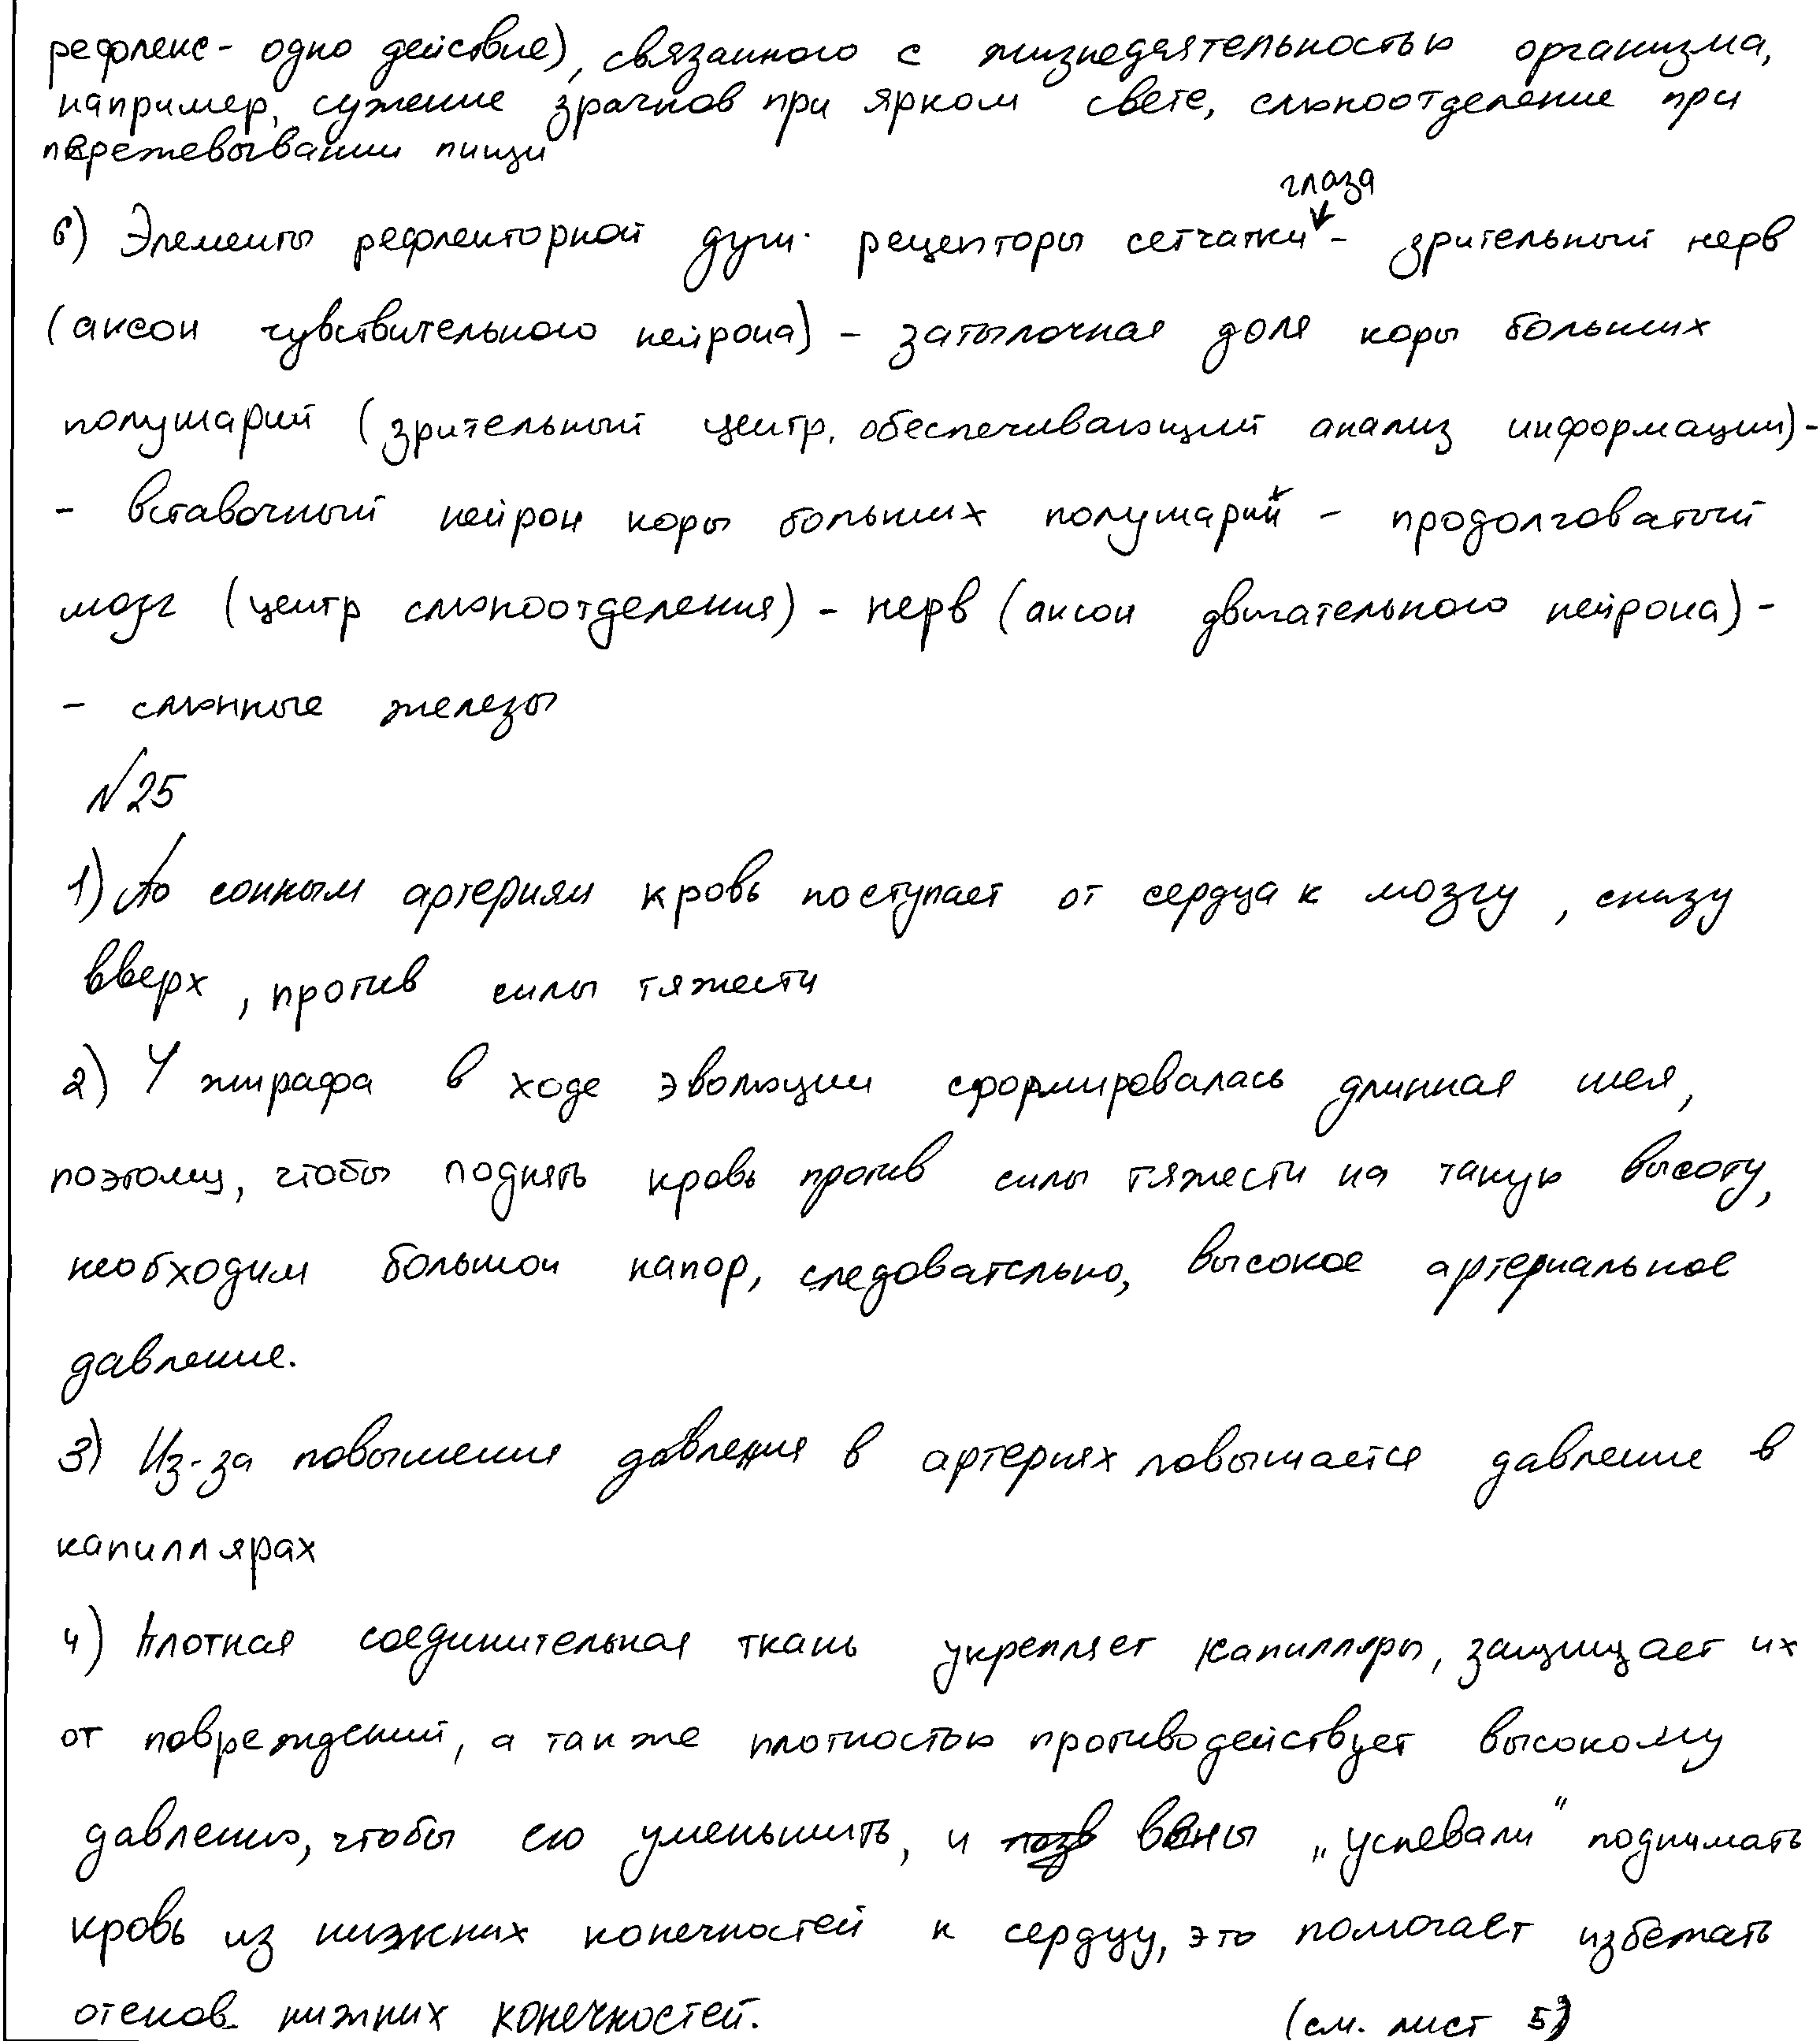 рефлекс - одно действие), связанного с жизнедеятельностью организма,
например, сужение зрачков при ярком свете, слюноотделение при
пережевывании пищи
глаза
6) Элементы рефлекторной дуги: рецепторы сетчатки - зрительный нерв
(аксон чувствительного нейрона) - затылочная доля коры больших
полушарий (зрительный центр, обеспечивающий анализ информации) -
- вставочный нейрон коры больших полушарий - продолговатый
мозг (центр слюноотделения) - нерв (аксон двигательного нейрона) -
- слюнные железы
№25
1) По сонным артериям кровь поступает от сердца к мозгу, снизу
вверх, против силы тяжести
2) У жирафа в ходе эволюции сформировалась длинная шея,
поэтому, чтобы поднять кровь против силы тяжести на такую высоту,
необходим большой напор, следовательно, высокое артериальное
давление.
3) Из-за повышения давления в артериях повышается давление в
капиллярах
4) Плотная соединительная ткань укрепляет капилляры, защищает их
от повреждений, а также плотностью противодействует высокому
давлению, чтобы его уменьшить, и вены "успевали" поднимать
кровь из нижних конечностей к сердцу, это помогает избежать
отеков нижних конечностей.
(см. лист 5)